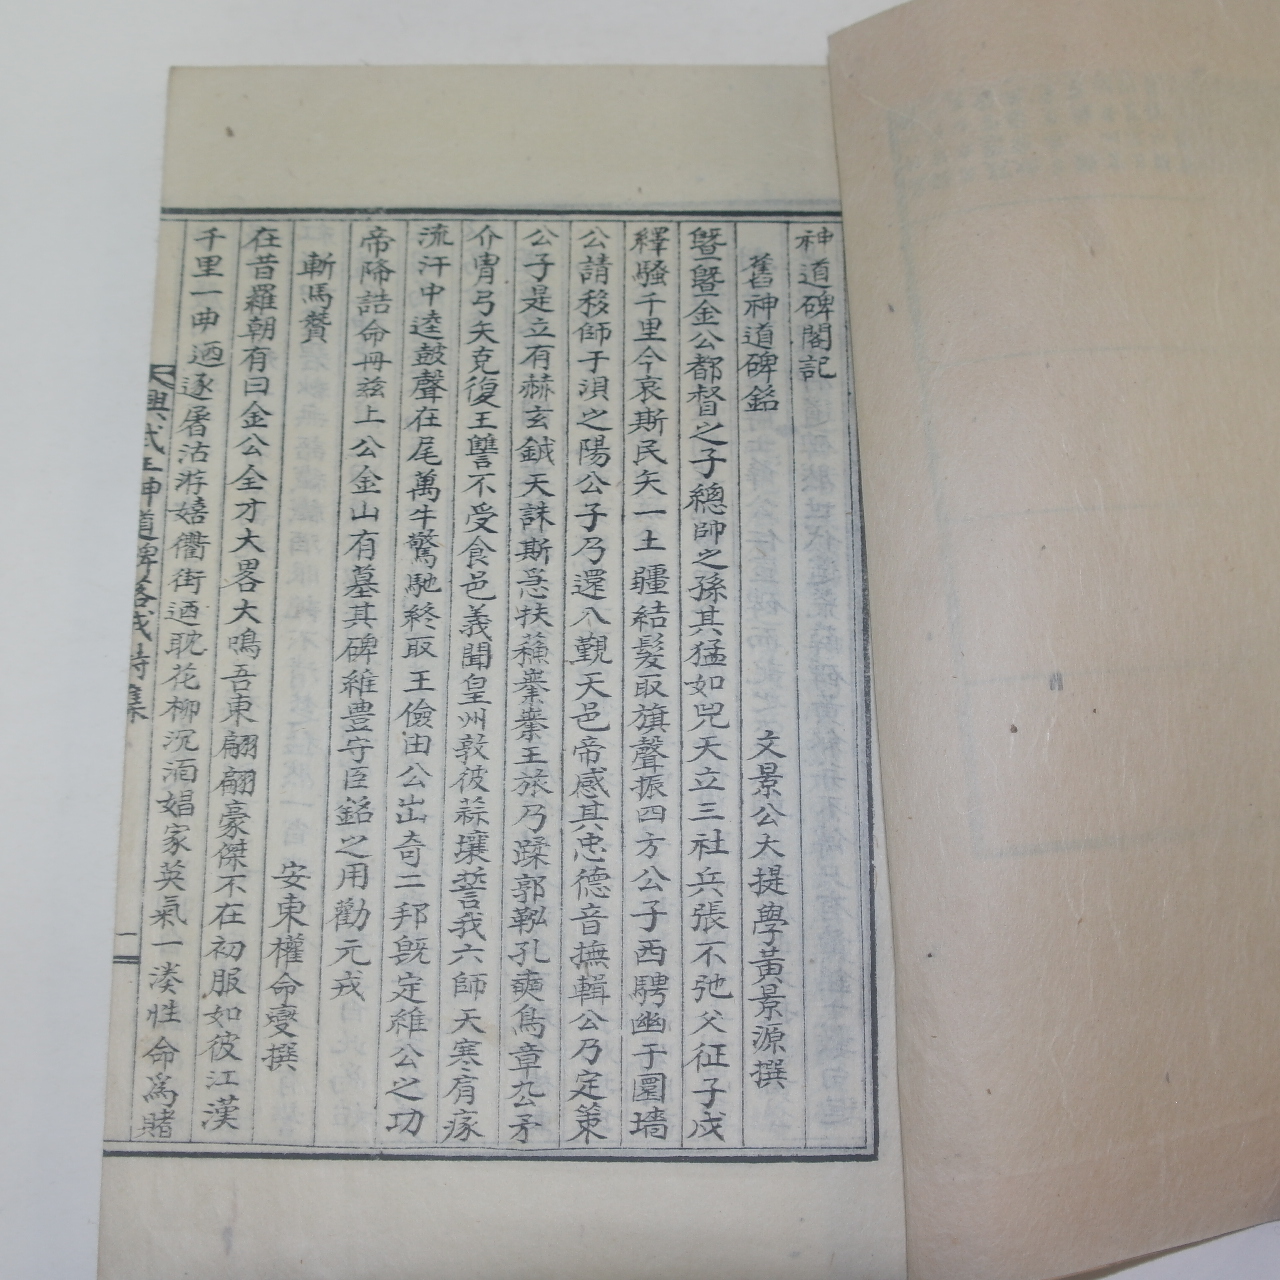 神道碑閣記
舊神道碑銘 文景公大提學黃景源撰
曁曁金公都督之子總帥之孫其猛如兕天立三社兵張不弛父征子戍
繹騷千里今哀斯民矢一土疆結髮取旗聲振四方公子西騁幽于圜墻
公請移師于浿之陽公子乃還入覲天邑帝感其忠德音撫輯公乃定策
公子是立有赫玄鉞天誅斯急扶蘓橐橐王旅乃蹂郭鞃孔奭鳥章厹矛
介冑弓矢克復王讐不受食邑義聞皇州敦彼蒜壤誓我六師天寒有瘃
流汗中逵鼓聲在尾萬牛驚馳終取王儉由公出奇二邦旣定維公之功
帝降誥命毋玆上公金山有墓其碑維豊守臣銘之用勸元戎
斬馬贊 安東權命燮撰
在昔羅朝有曰金公全才大畧大鳴吾東翩翩豪傑不在初服如彼江漢
千里一曲迺逐屠沽游嬉衢街迺耽花柳沉湎娼家英氣一湊性命爲賭
興武王神道碑落成詩集 一